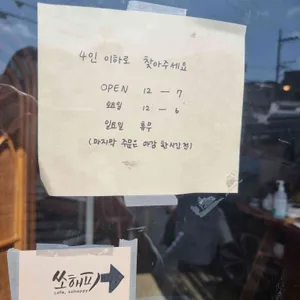 4인 이하로 찾아주세요
OPEN 12 — 7
토요일 12 — 6
일요일 휴무
(마지막 주문은 마감 한시간 전)
쏘해피
cafe. sohappy